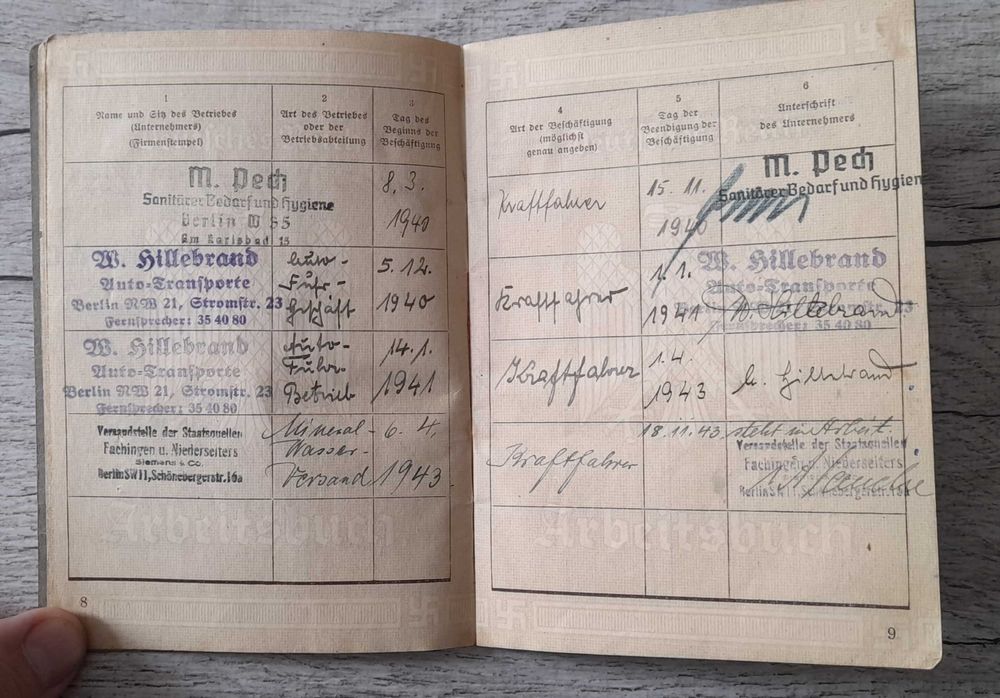 1
Name und Sitz des Betriebes
(Unternehmers)
(Firmenstempel)
2
Art des Betriebes
oder der
Betriebsabteilung
3
Tag des
Beginns der
Beschäftigung
M. Pech
Sanitärer Bedarf und Hygiene
Berlin W 35
Am Karlsbad 15
8. 3.
1940
W. Hillebrand
Auto-Transporte
Berlin NW 21, Stromstr. 23
Fernsprecher: 35 40 80
Auto-
Fuhr-
Geschäft
5. 12.
1940
W. Hillebrand
Auto-Transporte
Berlin NW 21, Stromstr. 23
Fernsprecher: 35 40 80
Auto-
Fuhr-
Betrieb
14. 1.
1941
Versandstelle der Staatsquellen
Fachingen u. Niederselters
Siemens & Co.
Berlin SW 11, Schönebergerstr. 16a
Mineral-
Wasser-
Versand
6. 4.
1943
Arbeitsbuch
8
4
Art der Beschäftigung
(möglichst
genau angeben)
5
Tag der
Beendigung der
Beschäftigung
6
Unterschrift
des Unternehmers
Kraftfahrer
15. 11.
1940
M. Pech
Sanitärer Bedarf und Hygien
Kraftfahrer
1. 1.
1941
W. Hillebrand
Auto-Transporte
W. Hillebrand
Kraftfahrer
1. 4.
1943
Hillebrand
Kraftfahrer
18. 11. 43 steht in Arbeit
Versandstelle der Staatsquellen
Fachingen u. Niederselters
Berlin SW 11, Schönebergerstr. 16a
Arbeitsbuch
9